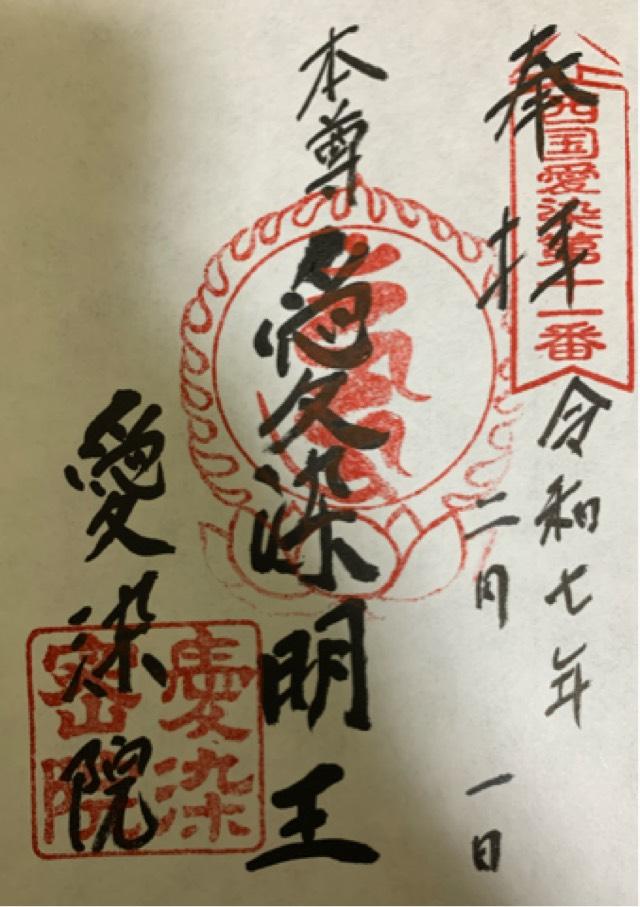 奉拝
西国愛染第十一番
令和七年
二月一日
本尊
愛染明王
愛染院
愛染
密院